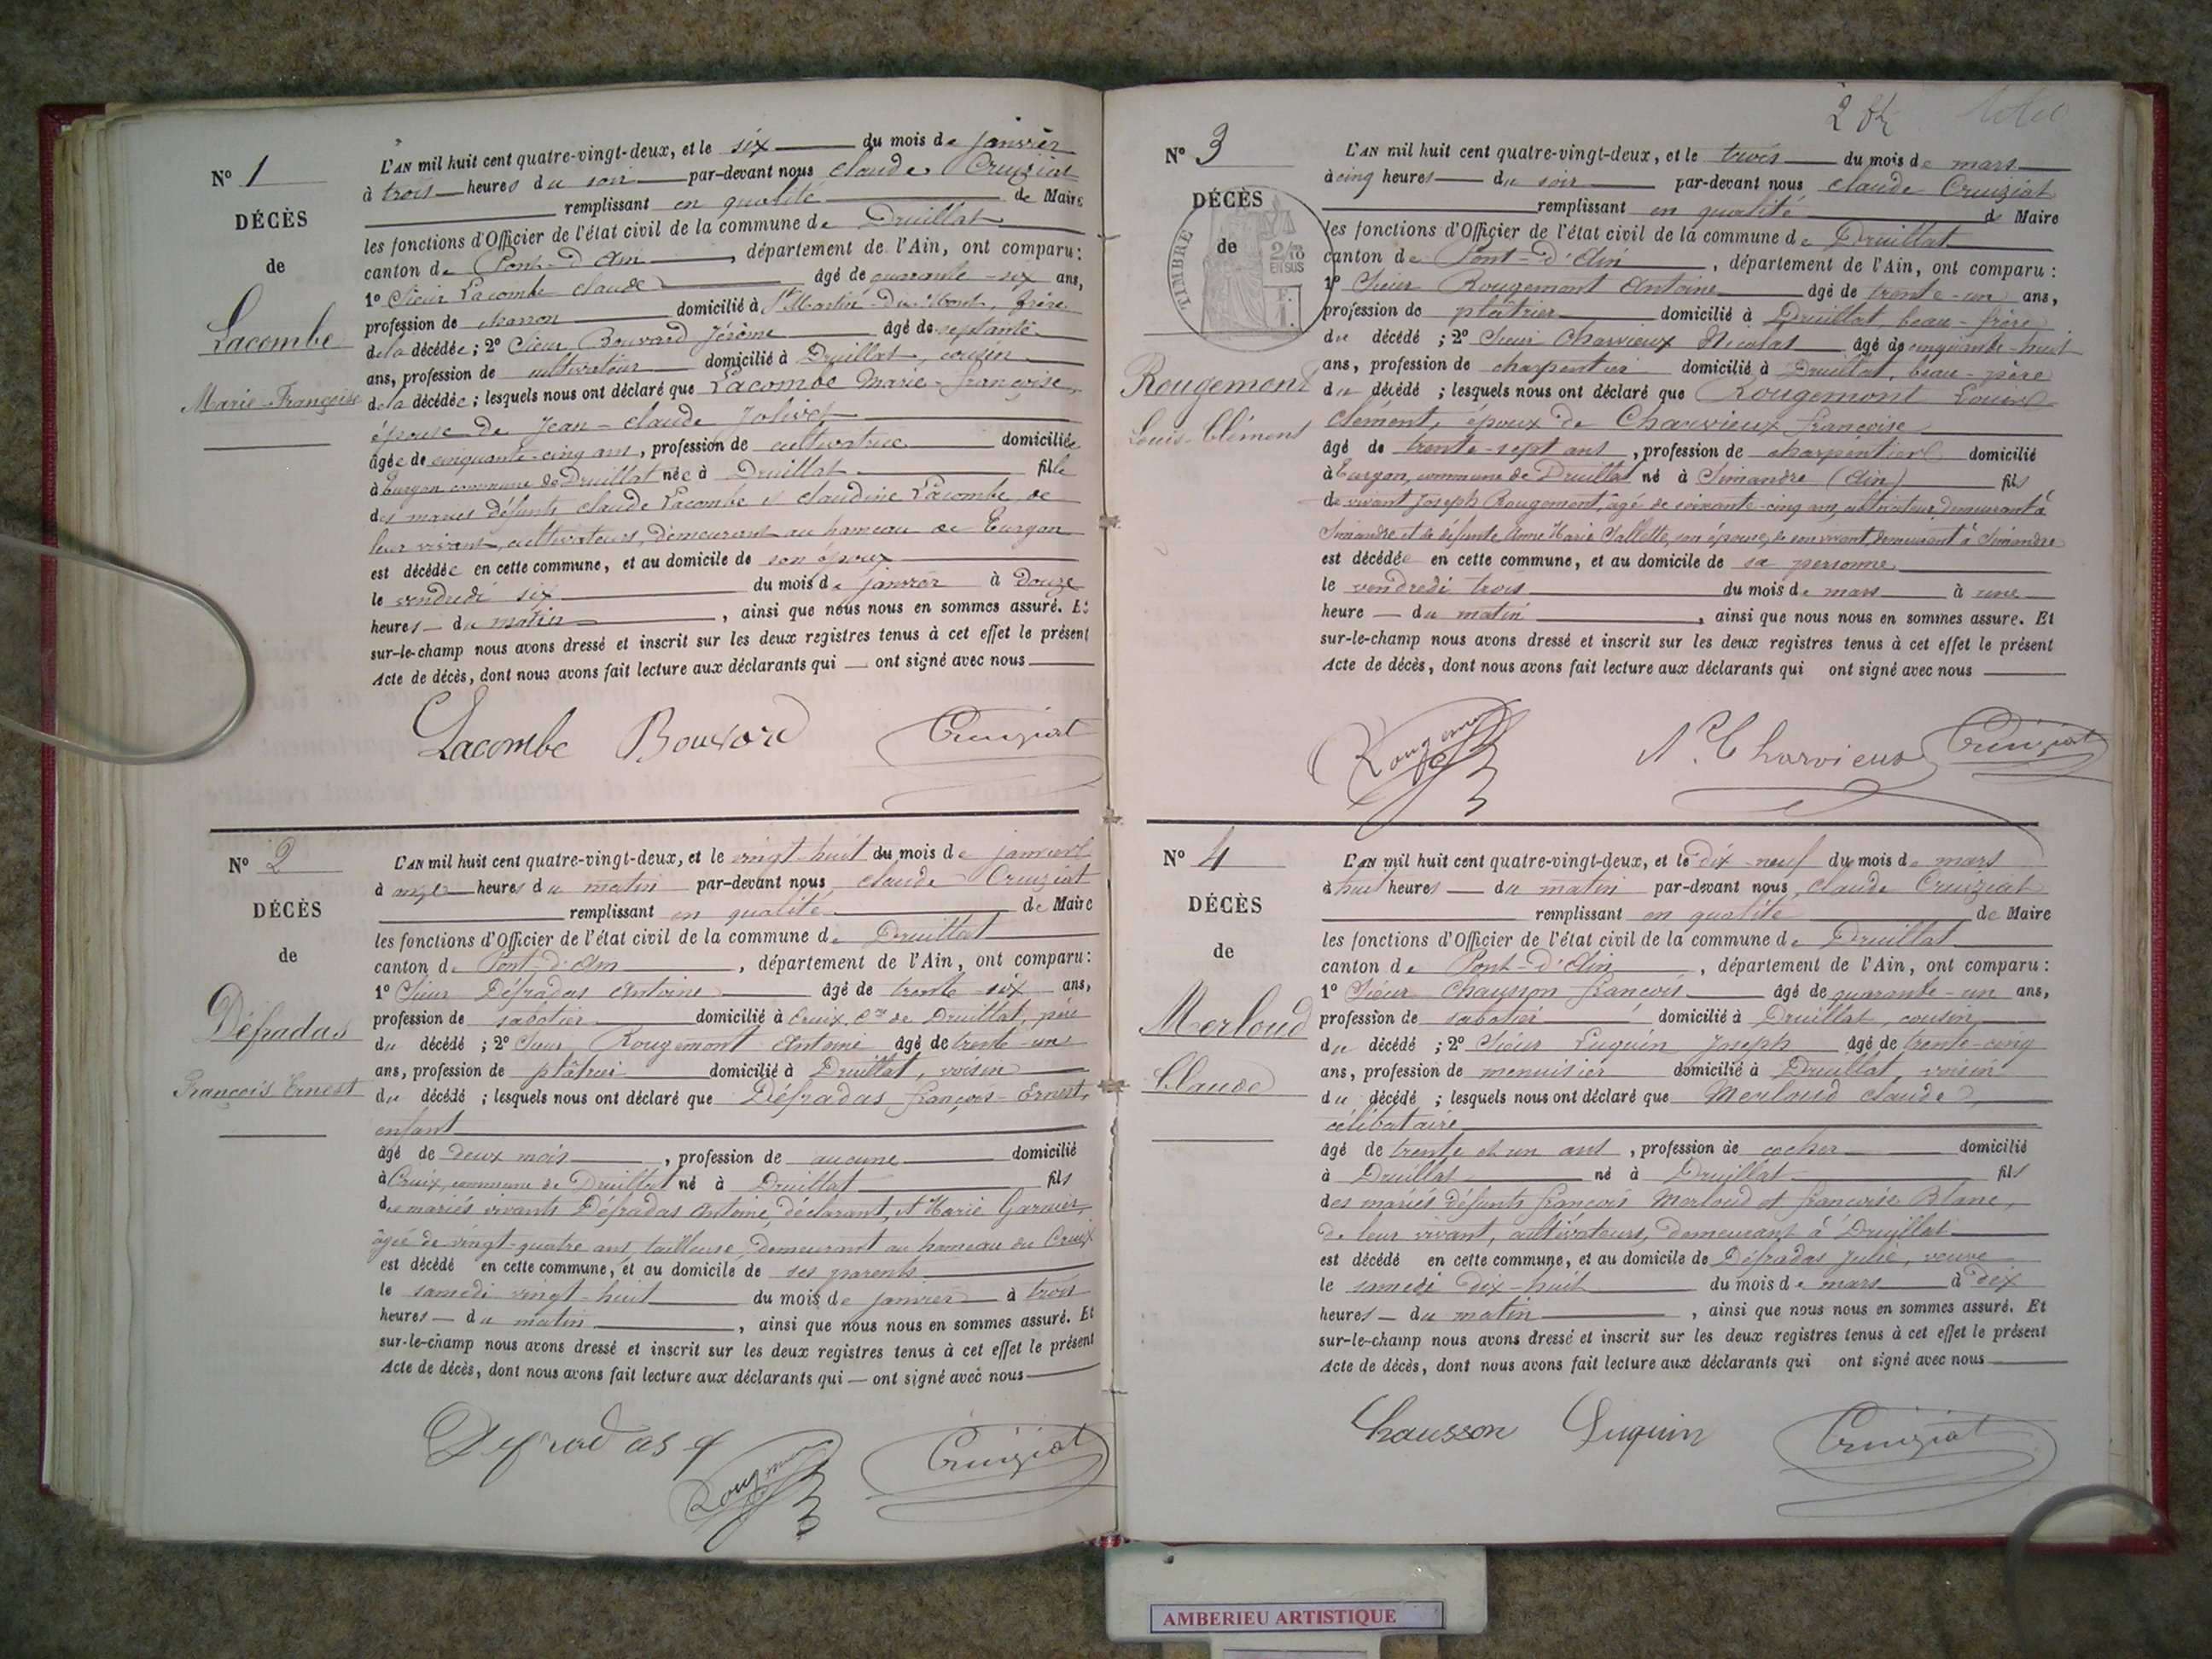 N° 1
DÉCÈS
de
Lacombe
Marie-Françoise
L'AN mil huit cent quatre-vingt-deux, et le six du mois de janvier
à trois heures du soir par-devant nous Claude Cruiziat
remplissant en qualité de Maire
les fonctions d'Officier de l'état civil de la commune de Druillat
canton de Pont-d'Ain, département de l'Ain, ont comparu :
1° Sieur Lacombe Claude âgé de quarante-six ans,
profession de charron domicilié à St Martin-du-Mont, frère
de la décédée ; 2° Sieur Bouvard Jérôme âgé de septante
ans, profession de cultivateur domicilié à Druillat, cousin
de la décédée ; lesquels nous ont déclaré que Lacombe Marie-Françoise,
épouse de Jean-Claude Jolivet
âgée de cinquante-cinq ans, profession de cultivatrice domiciliée
à Turgon commune de Druillat née à Druillat fille
des mariés défunts Claude Lacombe et Claudine Lacombe, de
leur vivant, cultivateurs, demeurant au hameau de Turgon
est décédée en cette commune, et au domicile de son époux
le vendredi six du mois de janvier à douze
heures du matin, ainsi que nous nous en sommes assuré. Et
sur-le-champ nous avons dressé et inscrit sur les deux registres tenus à cet effet le présent
Acte de décès, dont nous avons fait lecture aux déclarants qui ont signé avec nous
Lacombe Bouvard Cruiziat
N° 2
DÉCÈS
de
Défradas
François Ernest
L'AN mil huit cent quatre-vingt-deux, et le vingt-huit du mois de janvier
à onze heures du matin par-devant nous Claude Cruiziat
remplissant en qualité de Maire
les fonctions d'Officier de l'état civil de la commune de Druillat
canton de Pont-d'Ain, département de l'Ain, ont comparu :
1° Sieur Défradas Antoine âgé de trente-six ans,
profession de sabotier domicilié à Cruix, Cne de Druillat, père
du décédé ; 2° Sieur Rougemont Antoine âgé de trente-un
ans, profession de plâtrier domicilié à Druillat, voisin
du décédé ; lesquels nous ont déclaré que Défradas François-Ernest,
enfant
âgé de deux mois, profession de aucune domicilié
à Cruix, commune de Druillat né à Druillat fils
des mariés vivants Défradas Antoine, déclarant, et Marie Garnier,
âgée de vingt-quatre ans, tailleuse, demeurant au hameau du Cruix
est décédé en cette commune, et au domicile de ses parents
le samedi vingt-huit du mois de janvier à trois
heures du matin, ainsi que nous nous en sommes assuré. Et
sur-le-champ nous avons dressé et inscrit sur les deux registres tenus à cet effet le présent
Acte de décès, dont nous avons fait lecture aux déclarants qui ont signé avec nous
Defradas Rougemont Cruiziat
2
N° 3
DÉCÈS
de
TIMBRE
2/10
EN SUS
Rougemont
Louis-Clément
L'AN mil huit cent quatre-vingt-deux, et le trois du mois de mars
à cinq heures du soir par-devant nous Claude Cruiziat
remplissant en qualité de Maire
les fonctions d'Officier de l'état civil de la commune de Druillat
canton de Pont-d'Ain, département de l'Ain, ont comparu :
1° Sieur Rougemont Antoine âgé de trente-un ans,
profession de plâtrier domicilié à Druillat, beau-frère
du décédé ; 2° Sieur Charvieux Nicolas âgé de cinquante-huit
ans, profession de charpentier domicilié à Druillat, beau-père
du décédé ; lesquels nous ont déclaré que Rougemont Louis
Clément, époux de Charvieux Françoise
âgé de trente-sept ans, profession de charpentier domicilié
à Turgon, commune de Druillat né à Simandre (Ain) fils
de vivant Joseph Rougemont, âgé de soixante-cinq ans, cultivateur demeurant à
Simandre et de défunte Anne Marie son épouse, de son vivant, demeurant à Simandre
est décédée en cette commune, et au domicile de sa personne
le vendredi trois du mois de mars à une
heure du matin, ainsi que nous nous en sommes assuré. Et
sur-le-champ nous avons dressé et inscrit sur les deux registres tenus à cet effet le présent
Acte de décès, dont nous avons fait lecture aux déclarants qui ont signé avec nous
Rougemont N. Charvieux Cruiziat
N° 4
DÉCÈS
de
Merloud
Claude
L'AN mil huit cent quatre-vingt-deux, et le dix-neuf du mois de mars
à huit heures du matin par-devant nous Claude Cruiziat
remplissant en qualité de Maire
les fonctions d'Officier de l'état civil de la commune de Druillat
canton de Pont-d'Ain, département de l'Ain, ont comparu :
1° Sieur Chausson François âgé de quarante-un ans,
profession de sabotier domicilié à Druillat, cousin
du décédé ; 2° Sieur Luquin Joseph âgé de trente-cinq
ans, profession de menuisier domicilié à Druillat, voisin
du décédé ; lesquels nous ont déclaré que Merloud Claude
célibataire
âgé de trente et un ans, profession de cocher domicilié
à Druillat né à Druillat fils
des mariés défunts François Merloud et Françoise Blanc,
de leur vivant, cultivateurs, demeurant à Druillat
est décédé en cette commune, et au domicile de Défradas Julie, veuve
le samedi dix-huit du mois de mars à dix
heures du matin, ainsi que nous nous en sommes assuré. Et
sur-le-champ nous avons dressé et inscrit sur les deux registres tenus à cet effet le présent
Acte de décès, dont nous avons fait lecture aux déclarants qui ont signé avec nous
Chausson Luquin Cruiziat
AMBERIEU ARTISTIQUE